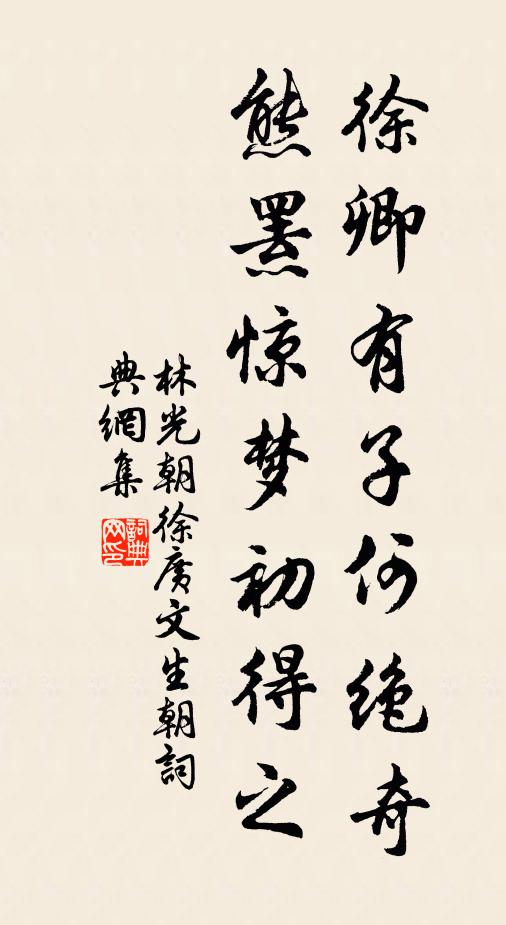 徐卿有子何绝奇
熊罴惊梦初得之
林光朝徐广文生朝詞
典網集
詞典网印